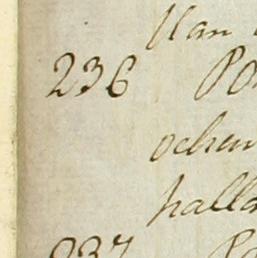 Kan
236 Po
ochen
halla
237 Pa